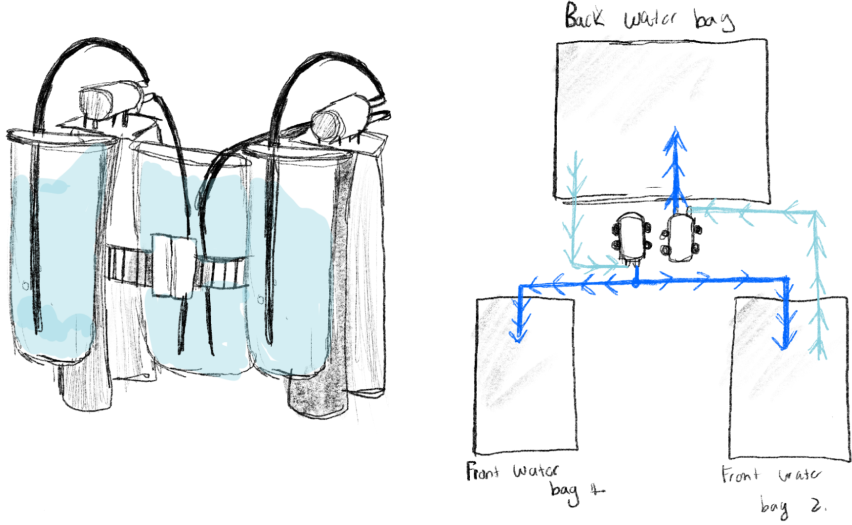 Back water bag
Front water
bag 1
Front water
bag 2.